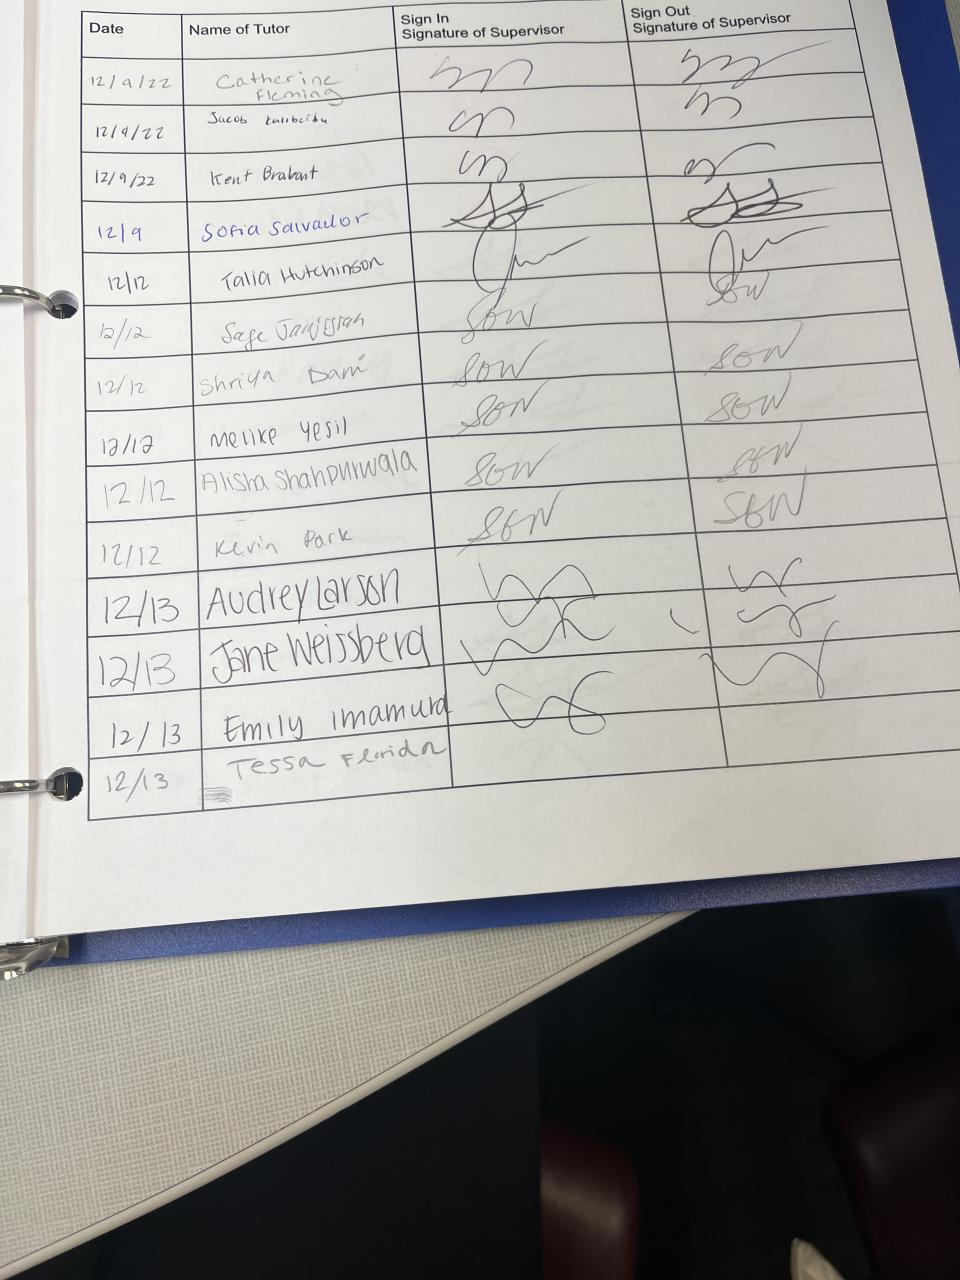 Date Name of Tutor Sign In Signature of Supervisor Sign Out Signature of Supervisor
12/9/22 Catherine Fleming
12/9/22 Jacob
12/9/22 Kent Brabant
12/9 Sofia Salvador
12/12 Talia Hutchinson
12/12 Sage SOW SOW
12/12 Shriya Dani SOW SOW
12/12 Melike Yesil SOW SOW
12/12 Alisha Shahpurwala SOW SOW
12/12 Kevin Park SOW SOW
12/13 Audrey Larson
12/13 Jane Weissberg
12/13 Emily imamura
12/13 Tessa Florida